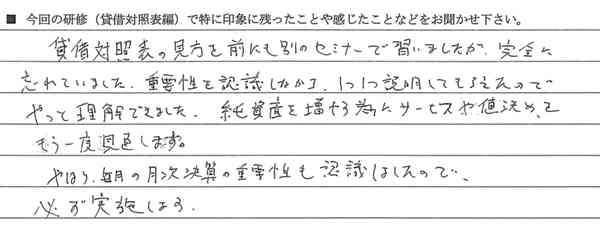 ■ 今回の研修（貸借対照表編）で特に印象に残ったことや感じたことなどをお聞かせ下さい。
貸借対照表の見方を前にも別のセミナーで習いましたが、完全に
忘れていました。重要性を認識しながら、1つ1つ説明してもらえたので
やっと理解できました。純資産を増やす為にサービスや値決めを
もう一度見直します。
やはり、毎月の月次決算の重要性も認識しましたので、
必ず実施します。